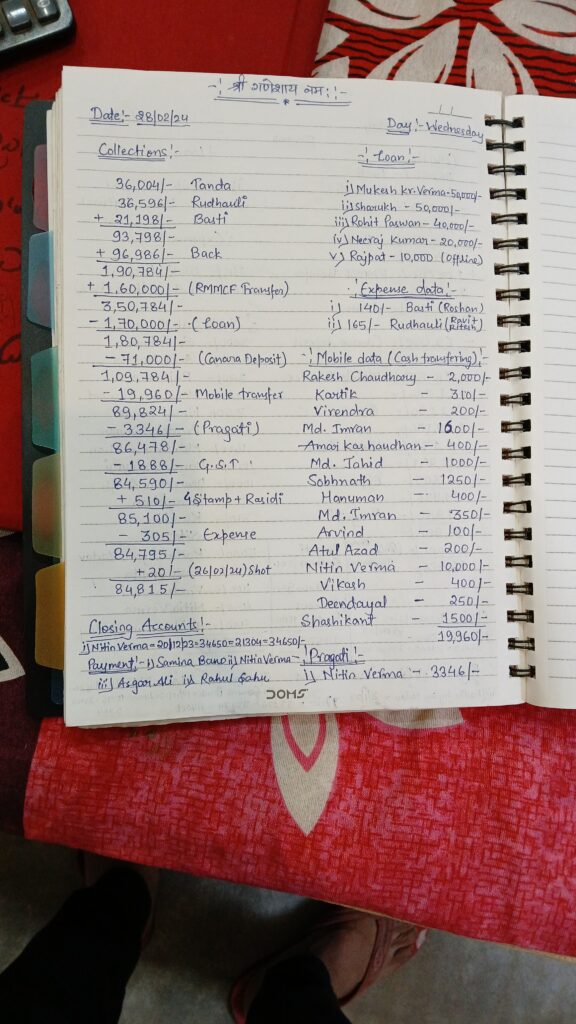 श्री गणेशाय नमः
Date:- 28/02/24
Day:- Wednesday
Collections:-
36,004/- Tanda
36,596/- Rudhauli
+ 21,198/- Basti
93,798/-
+ 96,986/- Back
1,90,784/-
+ 1,60,000/- (RMMCF Transfer)
3,50,784/-
- 1,70,000/- (Loan)
1,80,784/-
- 71,000/- (Canara Deposit)
1,09,784/-
- 19,960/- Mobile transfer
89,824/-
- 3346/- (Pragati)
86,478/-
- 1888/- G.S.T
84,590/-
+ 510/- 4 Stamp + Rasidi
85,100/-
- 305/- Expense
84,795/-
+ 20/- (26/02/24) Shot
84,815/-
Loan:-
i) Mukesh kr. Verma - 50,000/-
ii) Sharukh - 50,000/-
iii) Rohit Paswan - 40,000/-
iv) Neeraj Kumar - 20,000/-
v) Rajpat - 10,000 (Offline)
Expense data:-
i) 140/- Basti (Roshan)
ii) 165/- Rudhauli (Ravi +
Ritesh)
Mobile data (Cash transfering):-
Rakesh Chaudhary - 2,000/-
Kartik - 310/-
Virendra - 200/-
Md. Imran - 1600/-
Amar - 400/-
Md. Tahid - 1000/-
Sobhnath - 1250/-
Hanuman - 400/-
Md. Imran - 350/-
Arvind - 100/-
Atul Azad - 200/-
Nitin Verma - 10,000/-
Vikash - 400/-
Deendayal - 250/-
Shashikant - 1500/-
19,960/-
Closing Accounts:-
i) Nitin Verma = 20/12/23 = 34650 = 21304 = 34650/-
Payment:- i) Samina Bano ii) Nitin Verma
iii) Asgar Ali iv) Rahul Sahu
Pragati:-
i) Nitin Verma - 3346/-
DOMS